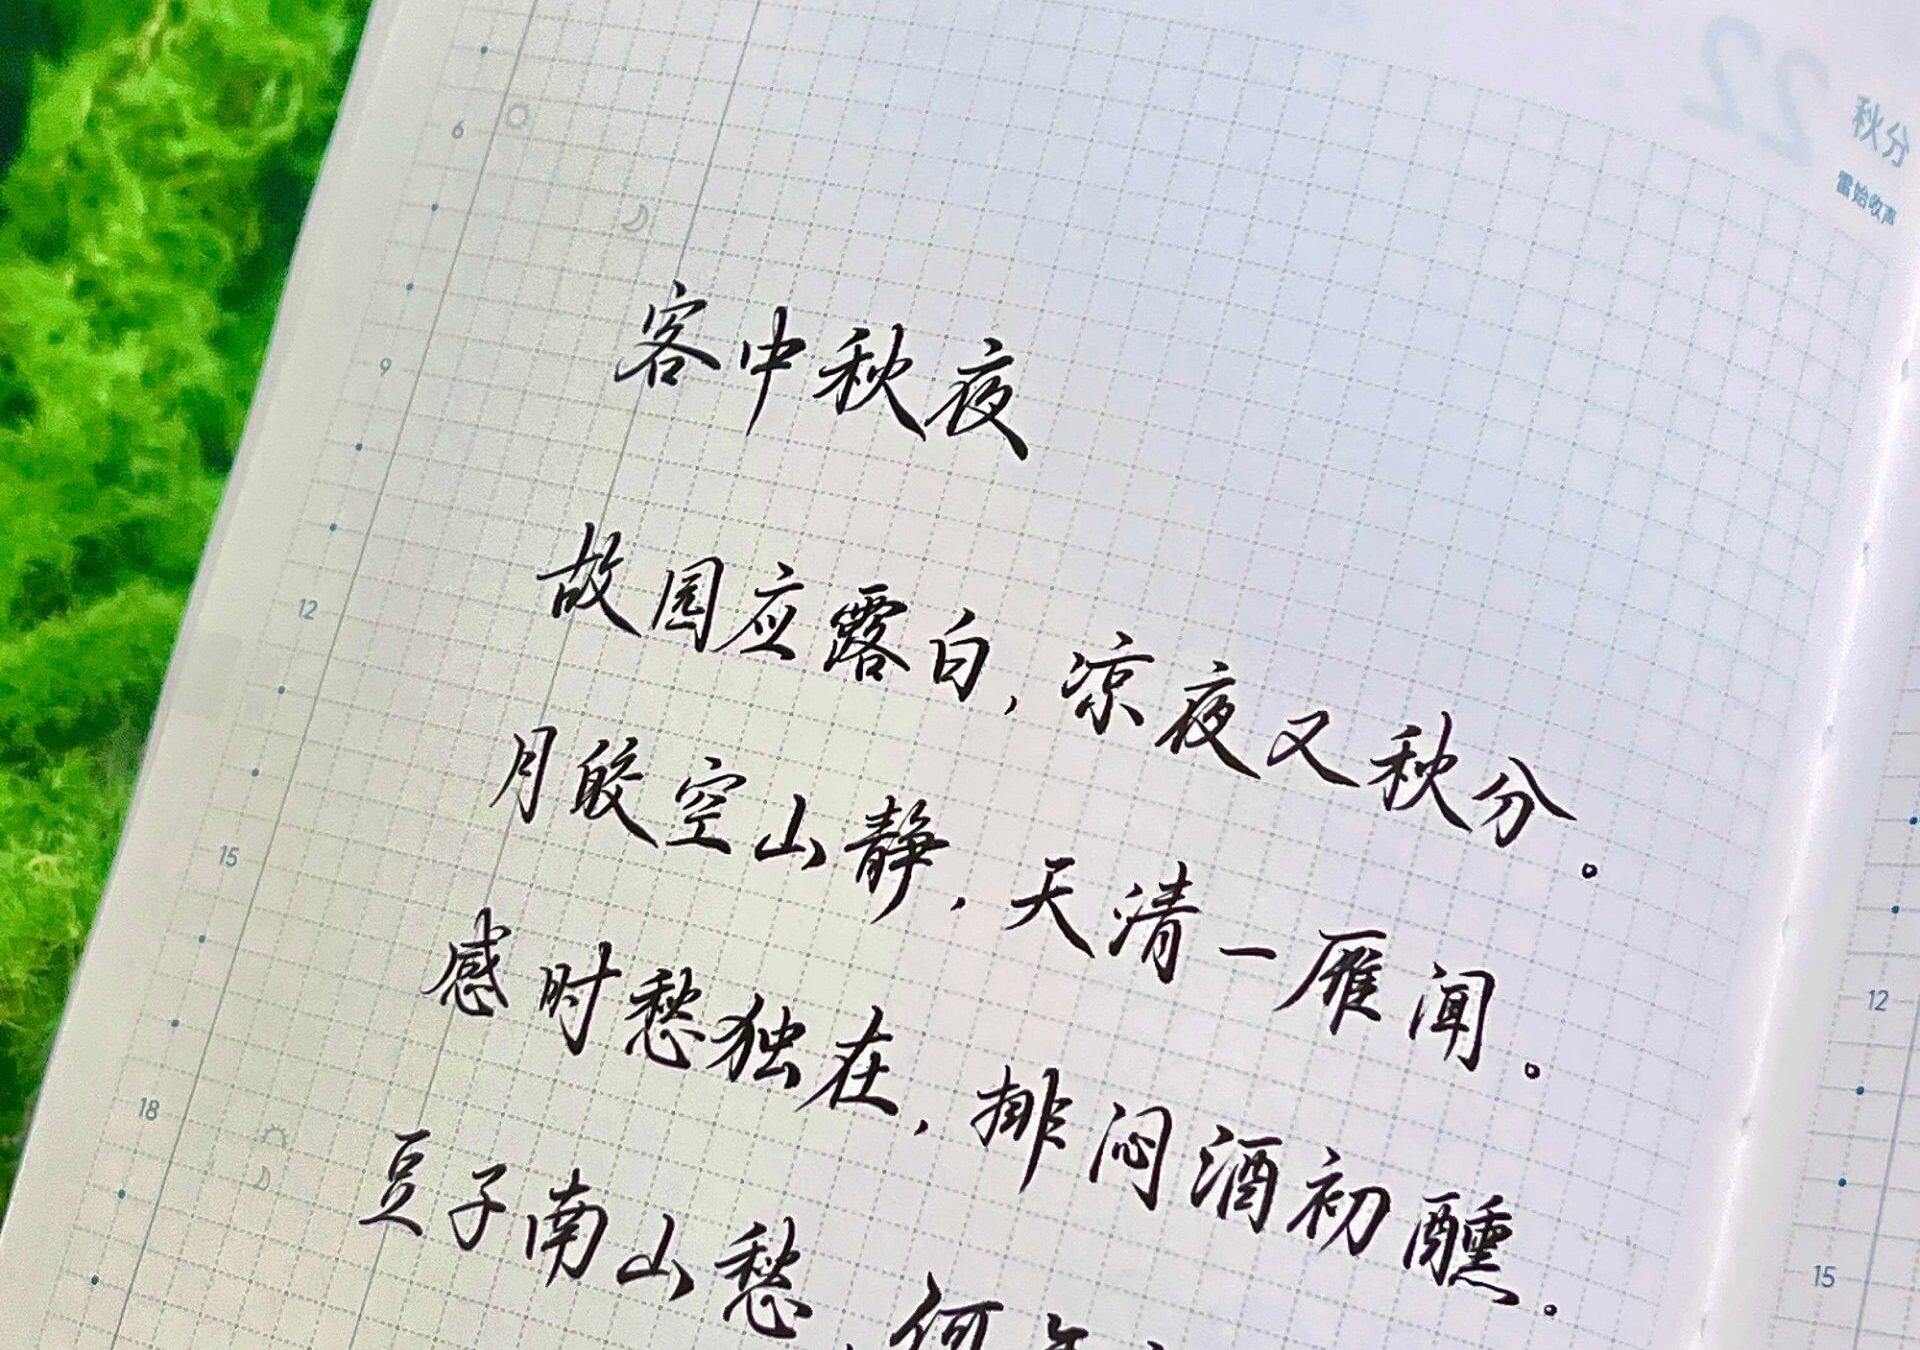 22
秋分
雷始收声
6
9
12
15
18
客中秋夜
故园应露白，凉夜又秋分。
月皎空山静，天清一雁闻。
感时愁独在，排闷酒初醺。
豆子南山愁，何年
12
15